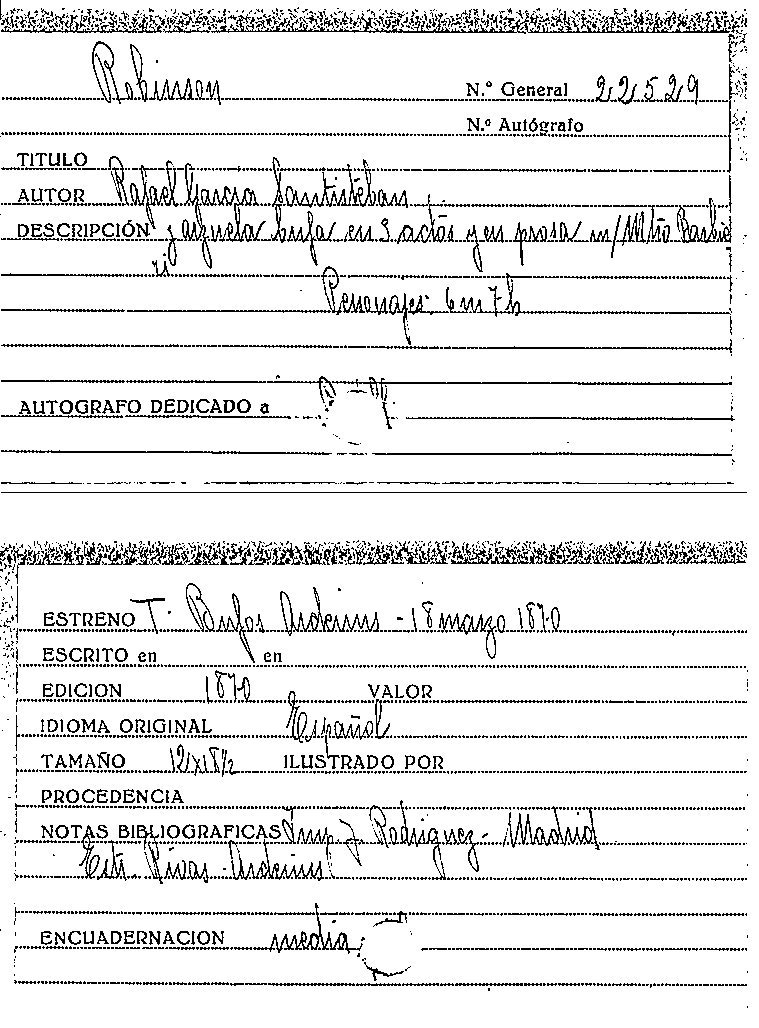 Robinson
N.º General 22529
N.º Autógrafo
TITULO
AUTOR Rafael Garcia Santisteban
DESCRIPCIÓN zarzuela bufa en 3 actos y en prosa m/ Mtro Barbie
ri
Personajes: 6 m 7 h
AUTOGRAFO DEDICADO a
ESTRENO T. Bufos Arderius - 18 marzo 1870
ESCRITO en en
EDICION 1870 VALOR
IDIOMA ORIGINAL Español
TAMAÑO 12x18½ ILUSTRADO POR
PROCEDENCIA
NOTAS BIBLIOGRAFICAS Imp. J. Rodriguez - Madrid
Rivas - Arderius
ENCUADERNACION media